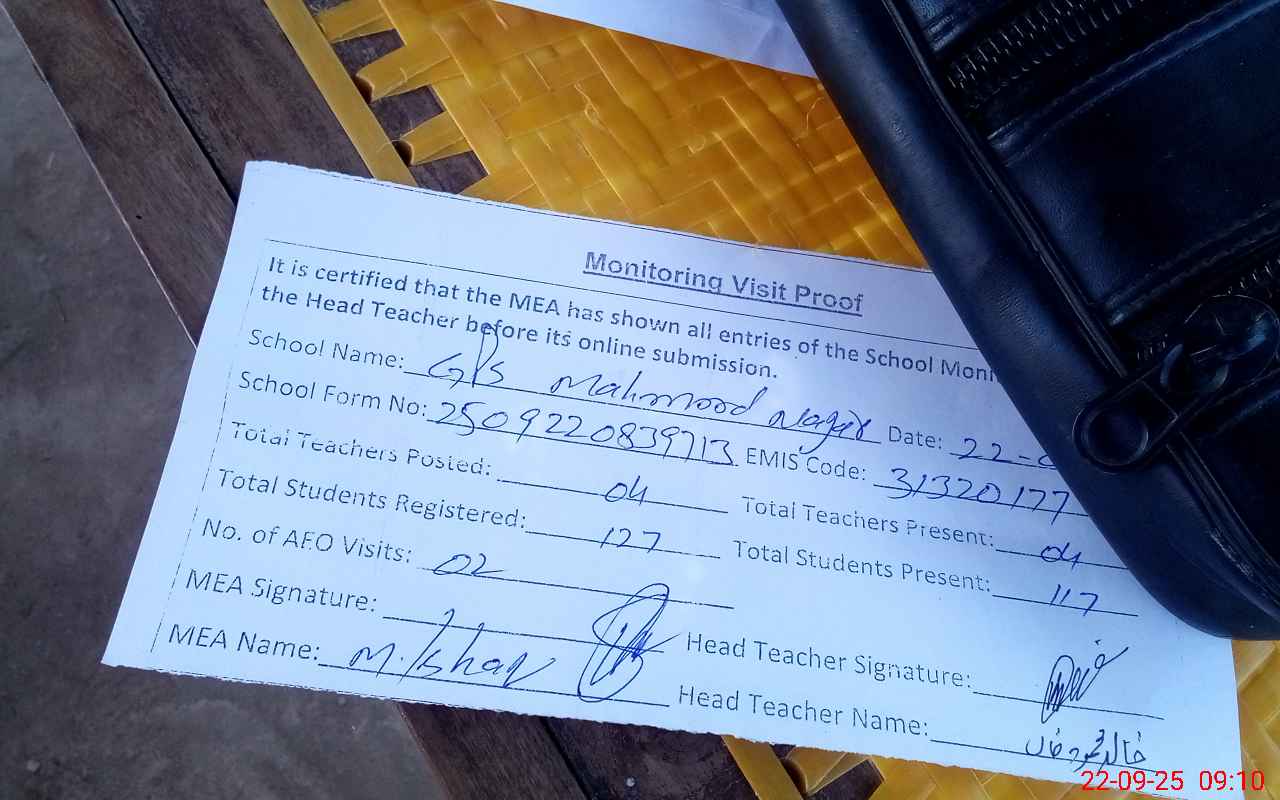 Monitoring Visit Proof
It is certified that the MEA has shown all entries of the School
the Head Teacher before its online submission.
School Name: G/S Mahmood Nagar Date: 22-
School Form No: 2509220839713 EMIS Code: 31320177
Total Teachers Posted: 04 Total Teachers Present: 04
Total Students Registered: 127 Total Students Present: 117
No. of AEO Visits: 02
MEA Signature: Head Teacher Signature:
MEA Name: M. Head Teacher Name:
22-09-25 09:10